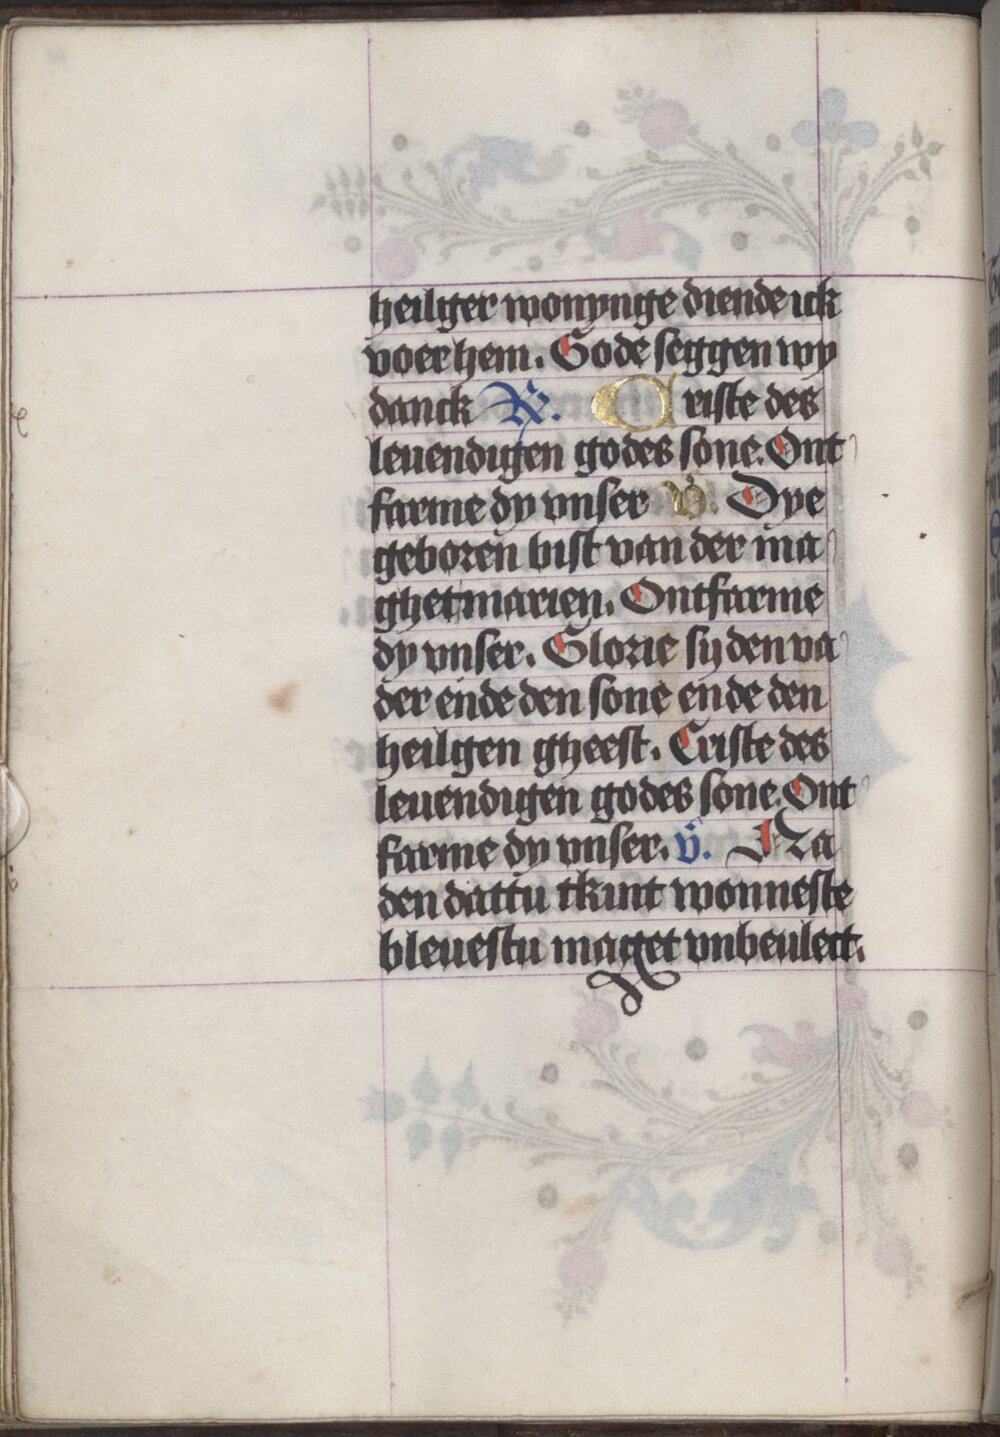 heiliger wonynge diende ick
voer hem. Gode seggen wy
danck ℟. Criste des
leuendigen godes sone. Ont
farme dy vnser ℣. Dye
geboren bist van der ma
ghet marien. Ontfarme
dy vnser. Glorie sy den va
der ende den sone ende den
heiligen gheest. Criste des
leuendigen godes sone. Ont
farme dy vnser. ℣. Na
den dattu tkint wonneste
bleuestu maget vnbeulect.